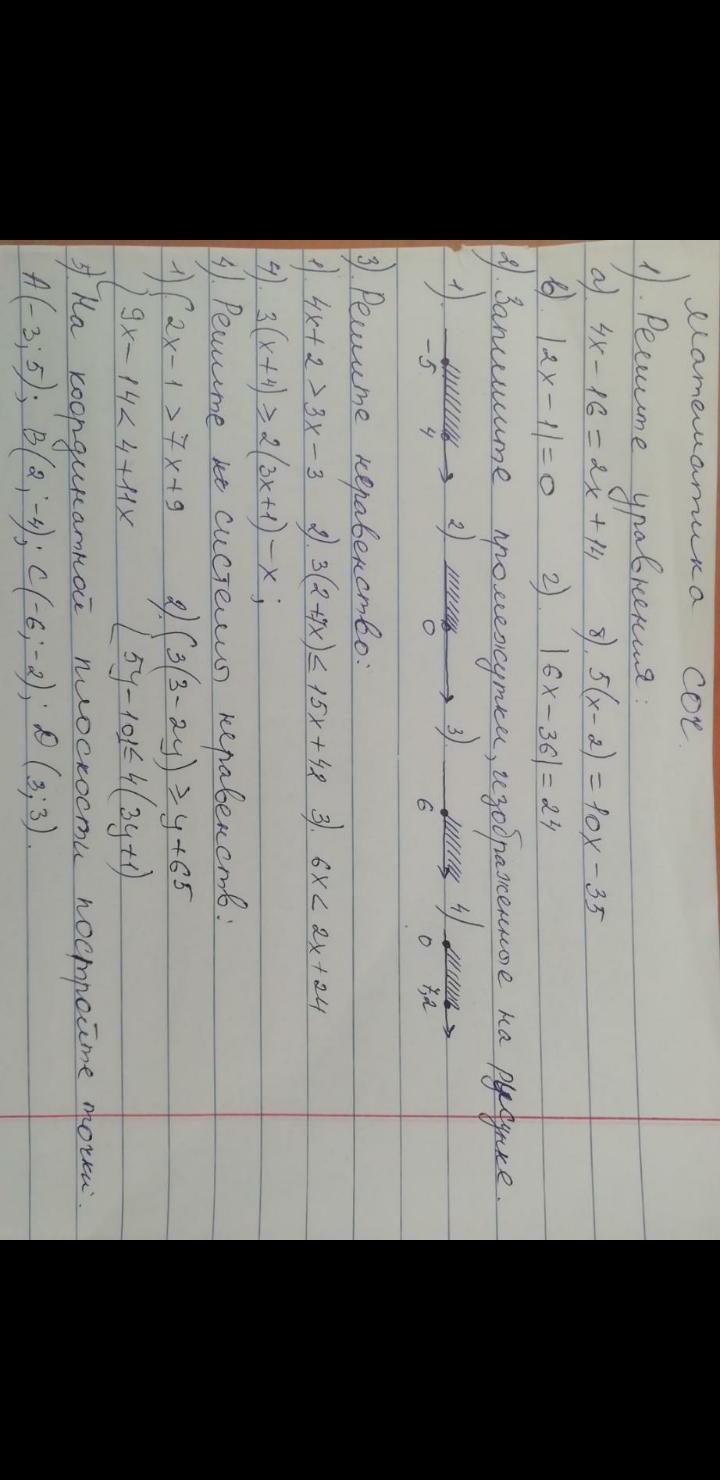 Математика СОЧ.
1). Решите уравнения:
а). 4х-16=2х+14 б). 5(х-2)=10х-35
в). |2х-1|=0 г). |6х-36|=24
2). Запишите промежутки, изображенные на рисунке.
1). 2) 3). 4)
-5 4 0 6 0 7,2
3). Решите неравенство:
1). 4х+2>3х-3 2). 3(2+7х)≤15х+42 3). 6х<2х+24
4). 3(х+4)≥2(3х+1)-х;
4). Решите системы неравенств:
1) { 2х-1>7х+9 2). { 3(3-2у)≥у+65
{ 9х-14<4+11х { 5у-10≤4(3у+1)
5). На координатной плоскости постройте точки.
А(-3;5); В(2;-4); С(-6;-2); D(3;3).